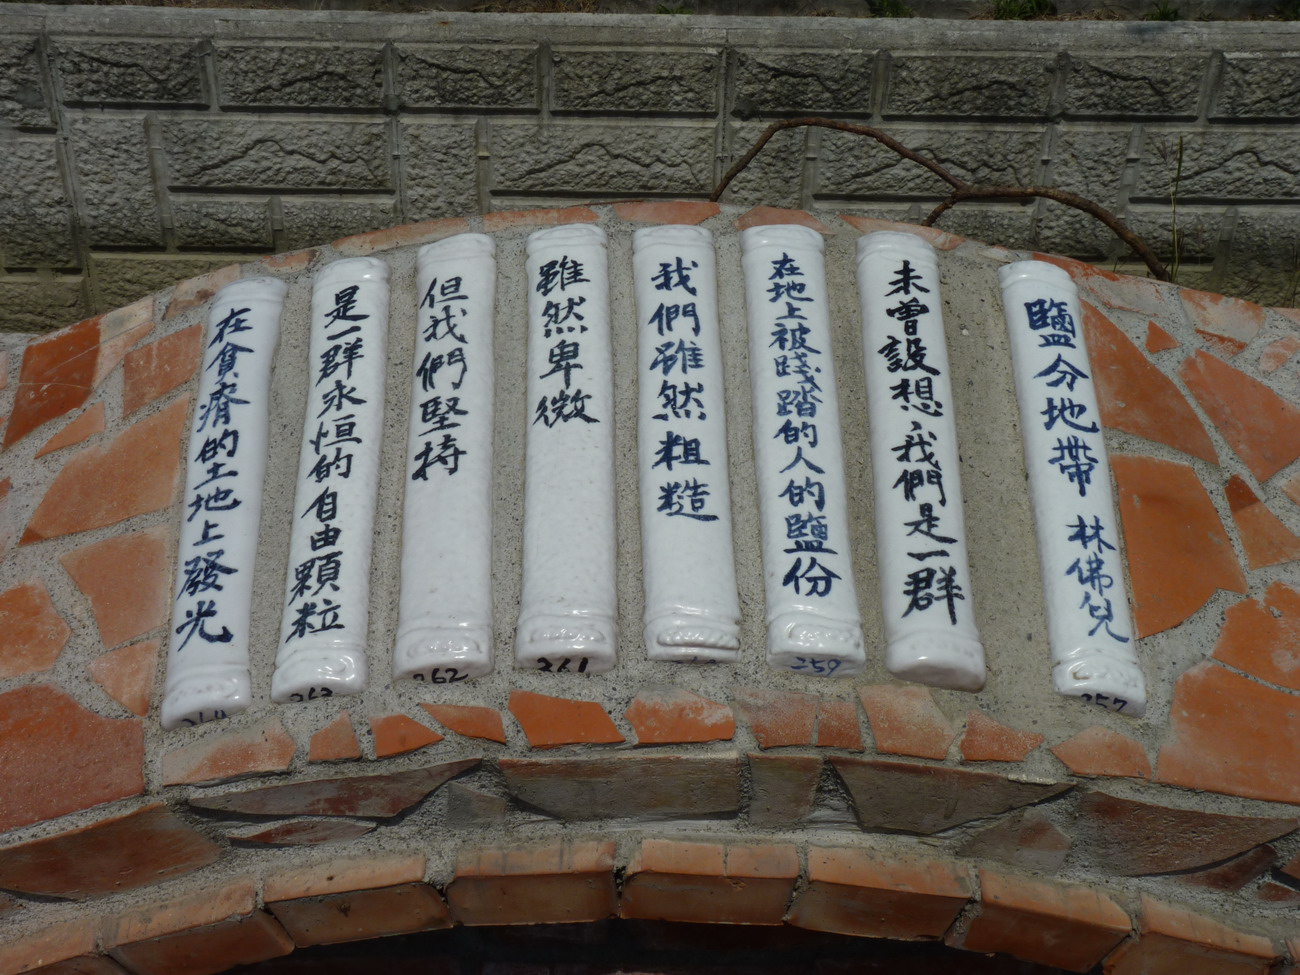 鹽分地帶 林佛兒
未曾設想，我們是一群
在地上被踐踏的人的鹽份
我們雖然粗糙
雖然卑微
但我們堅持
是一群永恒的自由顆粒
在貧瘠的土地上發光
257
259
261
262
263
264